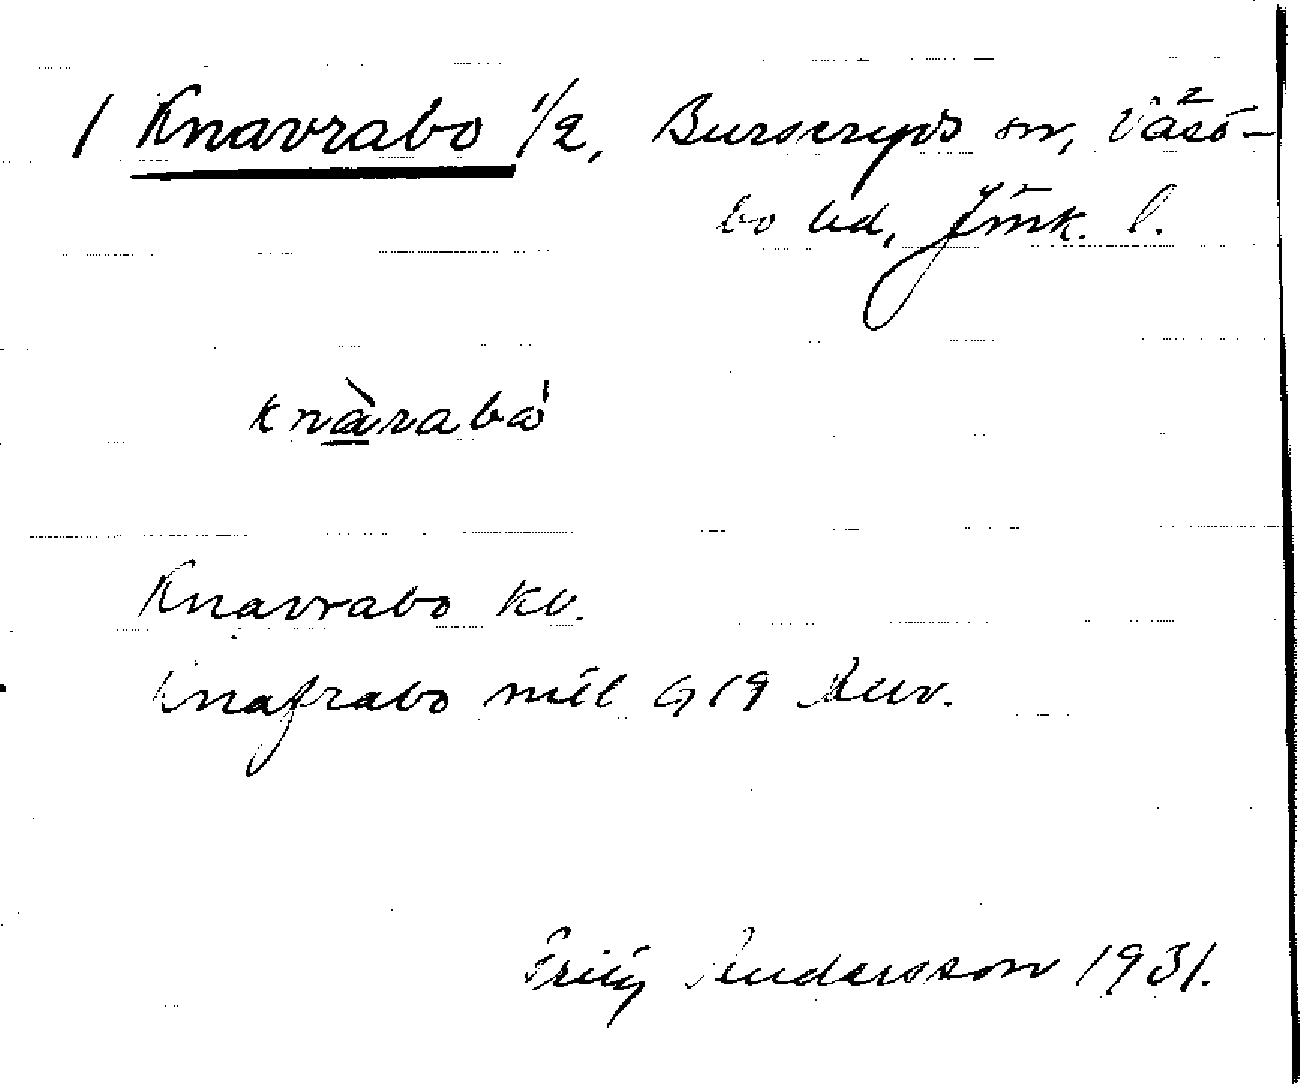 1 Knavrabo 1/2, Burseryds sn, Västbo hd, Jönk. l.
knàrabó
Knavrabo kv.
Knafrabo mtl G 19 Ruv.
Fritz Andersson 1931.